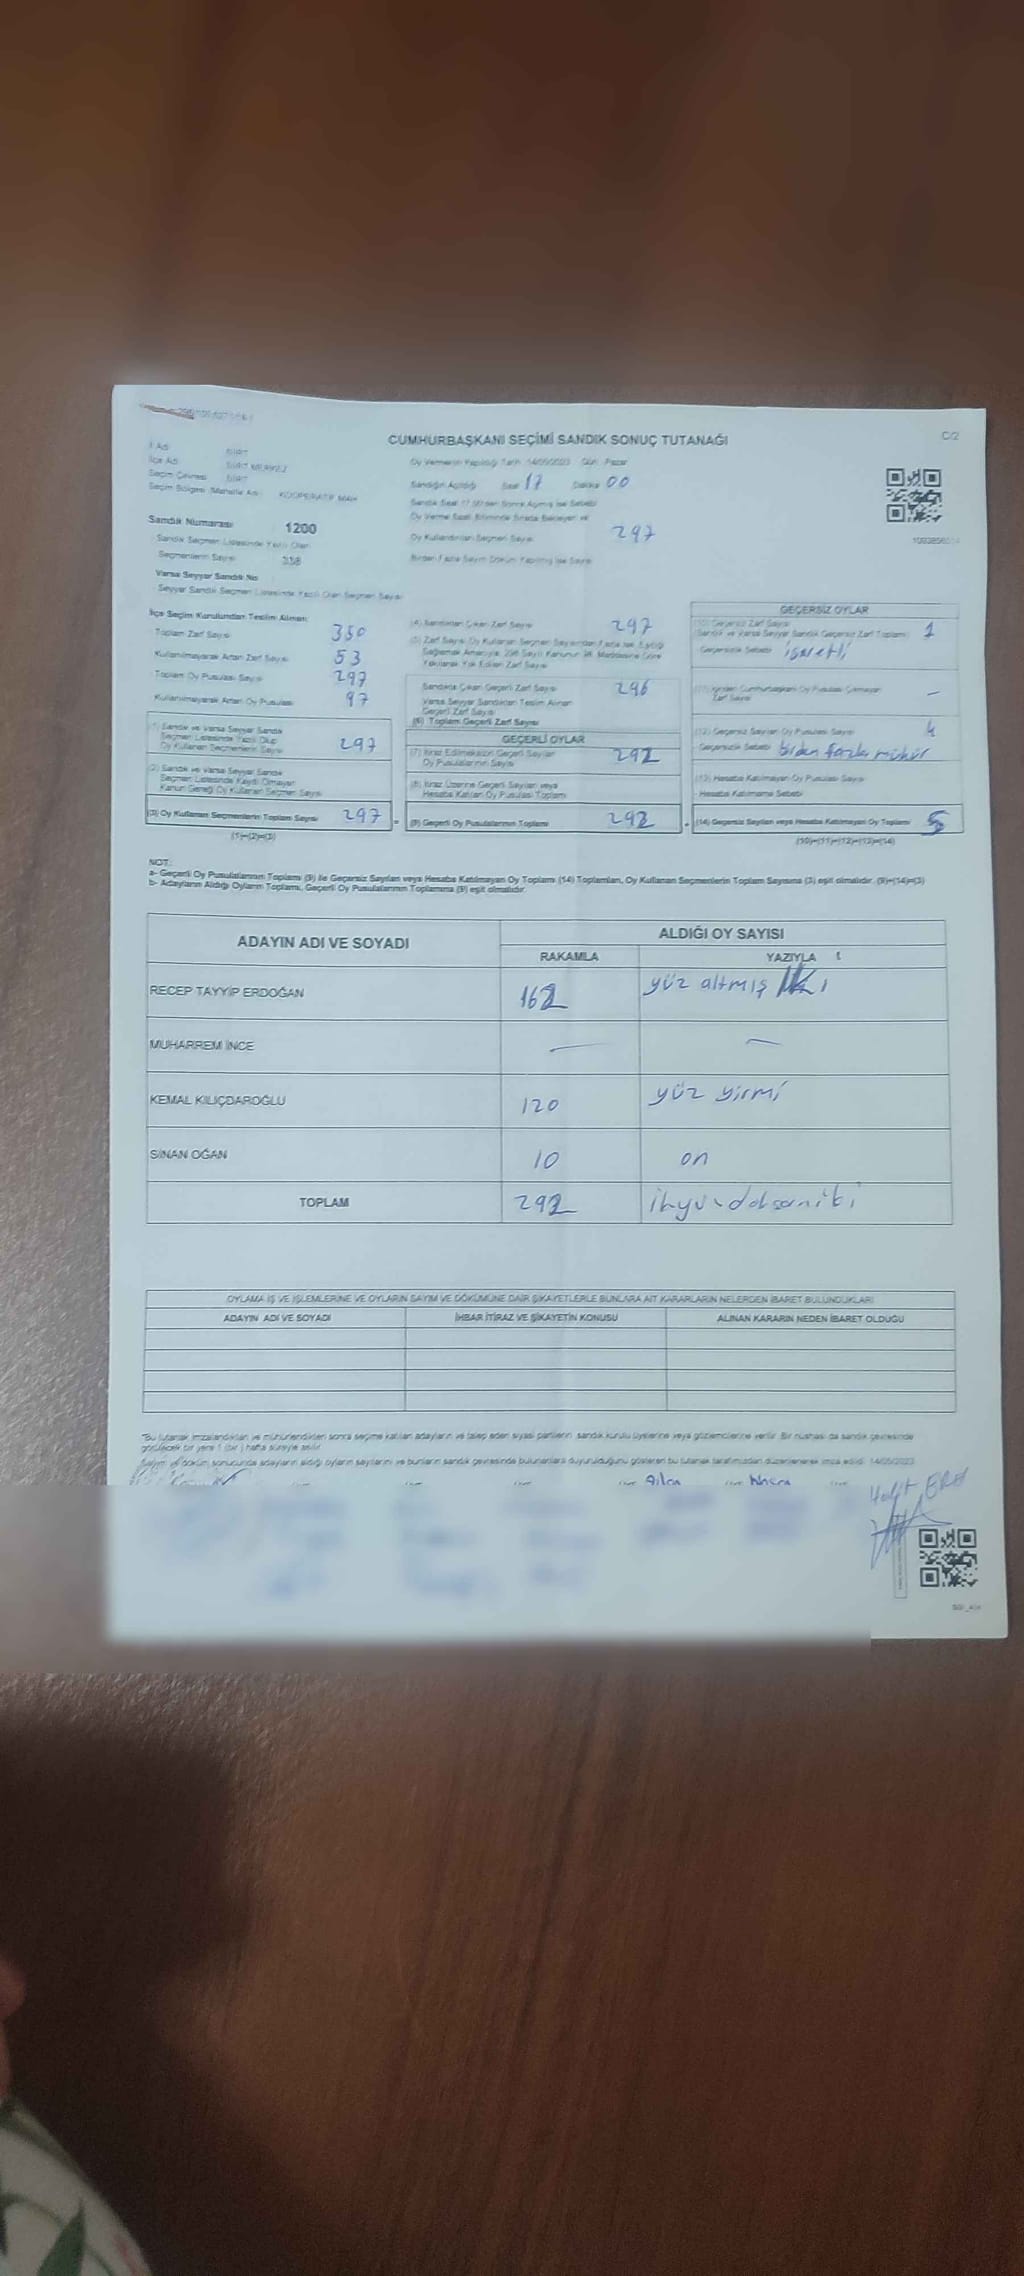 CUMHURBAŞKANI SEÇİMİ SANDIK SONUÇ TUTANAĞI
C/2
İl Adı SİİRT
İlçe Adı SİİRT MERKEZ
Seçim Çevresi SİİRT
Seçim Bölgesi (Mahalle Adı) KOOPERATİF MAH.
Oy Vermenin Yapıldığı Tarih 14/05/2023 Gün Pazar
Sandığın Açıldığı Saat 17 Dakika 00
Sandık Numarası 1200
Sandık Seçmen Listesinde Yazılı Olan
Seçmenlerin Sayısı 358
Varsa Seyyar Sandık No
Seyyar Sandık Seçmen Listesinde Yazılı Olan Seçmen Sayısı
Oy Kullandırılan Seçmen Sayısı 297
Birden Fazla Sayım Döküm Yapılmış İse Sayısı
İlçe Seçim Kurulundan Teslim Alınan
Toplam Zarf Sayısı 350
Kullanılmayarak Artan Zarf Sayısı 53
Toplam Oy Pusulası Sayısı 297
Kullanılmayarak Artan Oy Pusulası 97
(1) Sandık ve Varsa Seyyar Sandık
Seçmen Listesinde Yazılı Olup
Oy Kullanan Seçmenlerin Sayısı 297
(2) Sandık ve Varsa Seyyar Sandık
Seçmen Listesinde Kaydı Olmayan
Kanun Gereği Oy Kullanan Seçmen Sayısı
(3) Oy Kullanan Seçmenlerin Toplam Sayısı 297
(1)+(2)=(3)
(4) Sandıktan Çıkan Zarf Sayısı 297
Sandıkta Çıkan Geçerli Zarf Sayısı 296
Varsa Seyyar Sandıktan Teslim Alınan
Geçerli Zarf Sayısı
(6) Toplam Geçerli Zarf Sayısı
GEÇERLİ OYLAR
(7) İtiraz Edilmeksizin Geçerli Sayılan
Oy Pusulalarının Sayısı 292
(8) İtiraz Üzerine Geçerli Sayılan veya
Hesaba Katılan Oy Pusulası Toplamı
(9) Geçerli Oy Pusulalarının Toplamı 292
GEÇERSİZ OYLAR
(10) Geçersiz Zarf Sayısı
Sandık ve Varsa Seyyar Sandık Geçersiz Zarf Toplamı 1
Geçersizlik Sebebi işaretli
(11) İçinden Cumhurbaşkanı Oy Pusulası Çıkmayan
Zarf Sayısı –
(12) Geçersiz Sayılan Oy Pusulası Sayısı 4
Geçersizlik Sebebi birden fazla mühür
(13) Hesaba Katılmayan Oy Pusula Sayısı
Hesaba Katılmama Sebebi
(14) Geçersiz Sayılan veya Hesaba Katılmayan Oy Toplamı 5
(10)+(11)+(12)+(13)=(14)
NOT:
a- Geçerli Oy Pusulalarının Toplamı (9) ile Geçersiz Sayılan veya Hesaba Katılmayan Oy Toplamı (14) Toplamları, Oy Kullanan Seçmenlerin Toplam Sayısına (3) eşit olmalıdır. (9)+(14)=(3)
b- Adayların Aldığı Oyların Toplamı, Geçerli Oy Pusulalarının Toplamına (9) eşit olmalıdır.
ADAYIN ADI VE SOYADI
ALDIĞI OY SAYISI
RAKAMLA YAZIYLA
RECEP TAYYİP ERDOĞAN 162 yüz altmış iki
MUHARREM İNCE — —
KEMAL KILIÇDAROĞLU 120 yüz yirmi
SİNAN OĞAN 10 on
TOPLAM 292
OYLAMA İŞ VE İŞLEMLERİNE VE OYLARIN SAYIM VE DÖKÜMÜNE DAİR ŞİKAYETLERLE BUNLARA AİT KARARLARIN NELERDEN İBARET BULUNDUKLARI
ADAYIN ADI VE SOYADI İHBAR İTİRAZ VE ŞİKAYETİN KONUSU ALINAN KARARIN NEDEN İBARET OLDUĞU
"Bu tutanak imzalandıktan ve mühürlendikten sonra seçime katılan adayların ve talep eden siyasi partilerin sandık kurulu üyelerine veya gözlemcilerine verilir. Bir nüshası da sandık çevresinde
görülecek bir yere 1 (bir) hafta süreyle asılır.
Sayım ve döküm sonucunda adayların aldığı oyların sayılarını ve bunların sandık çevresinde bulunanlara duyurulduğunu gösteren bu tutanak tarafımızdan düzenlenerek imza edildi. 14/05/2023